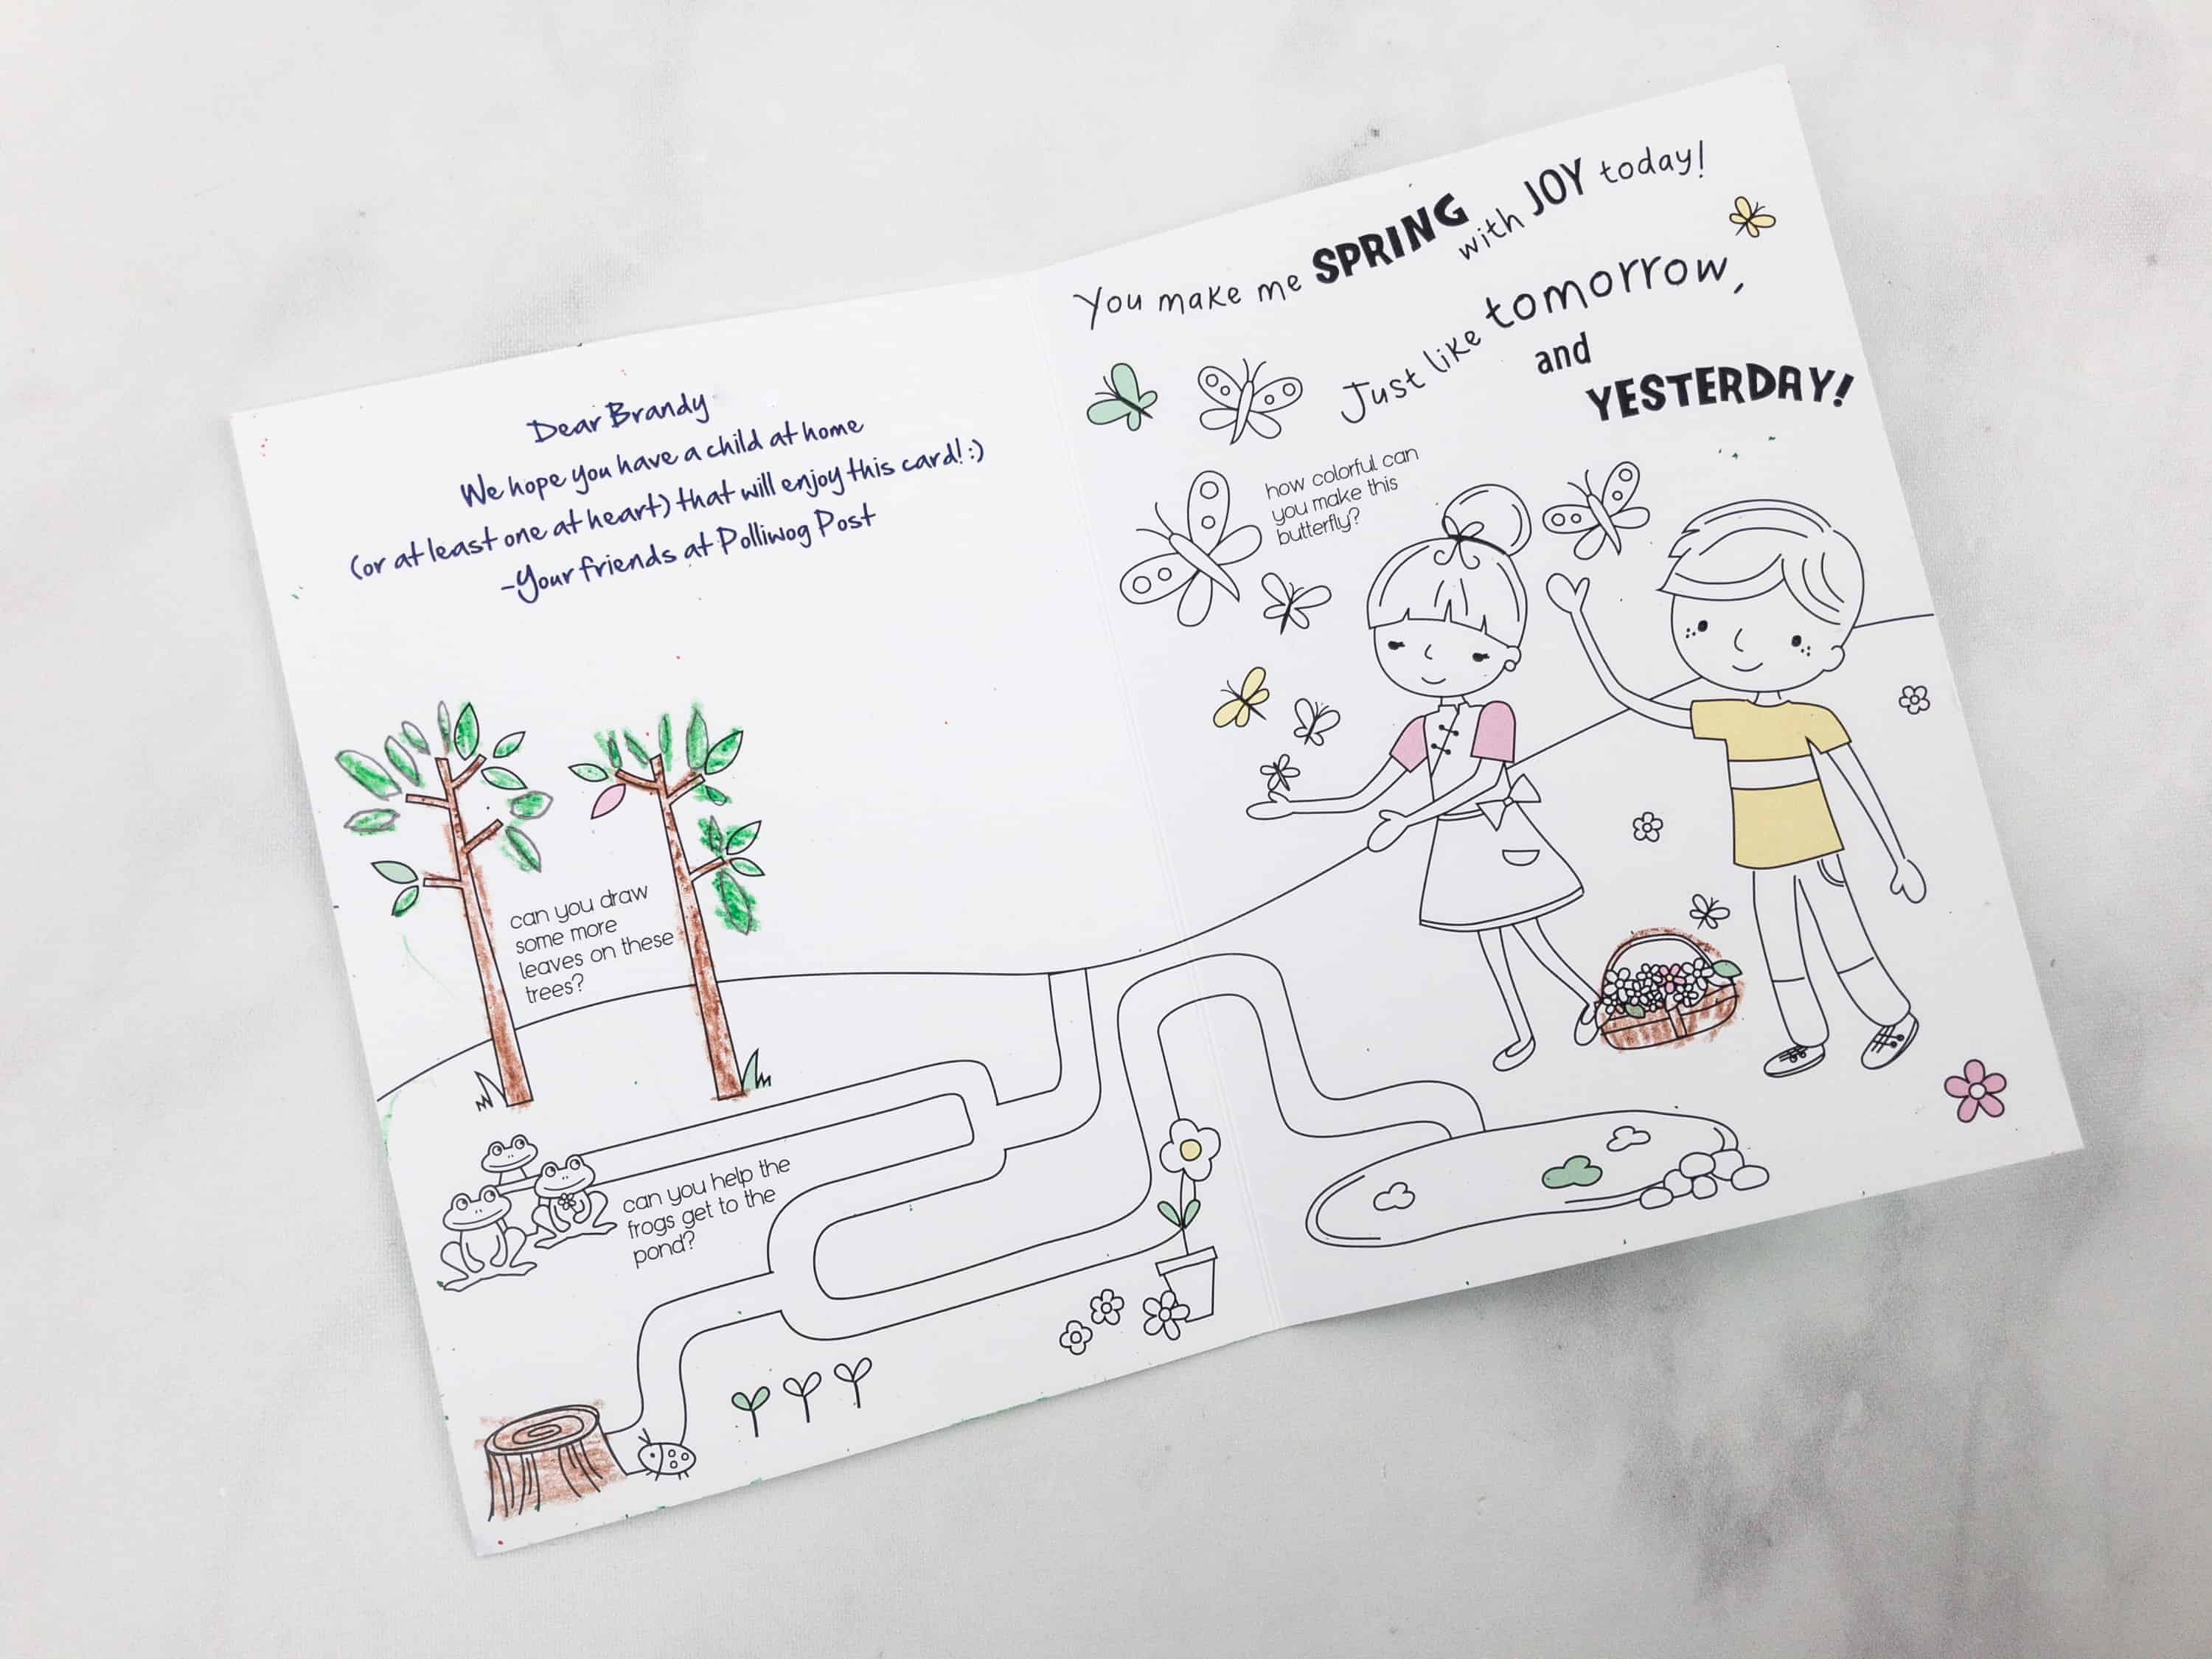 Dear Brandy
We hope you have a child at home
(or at least one at heart) that will enjoy this card! :)
-Your friends at Polliwog Post
can you draw
some more
leaves on these
trees?
can you help the
frogs get to the
pond?
You make me SPRING with JOY today!
Just like tomorrow,
and
YESTERDAY!
how colorful can
you make this
butterfly?